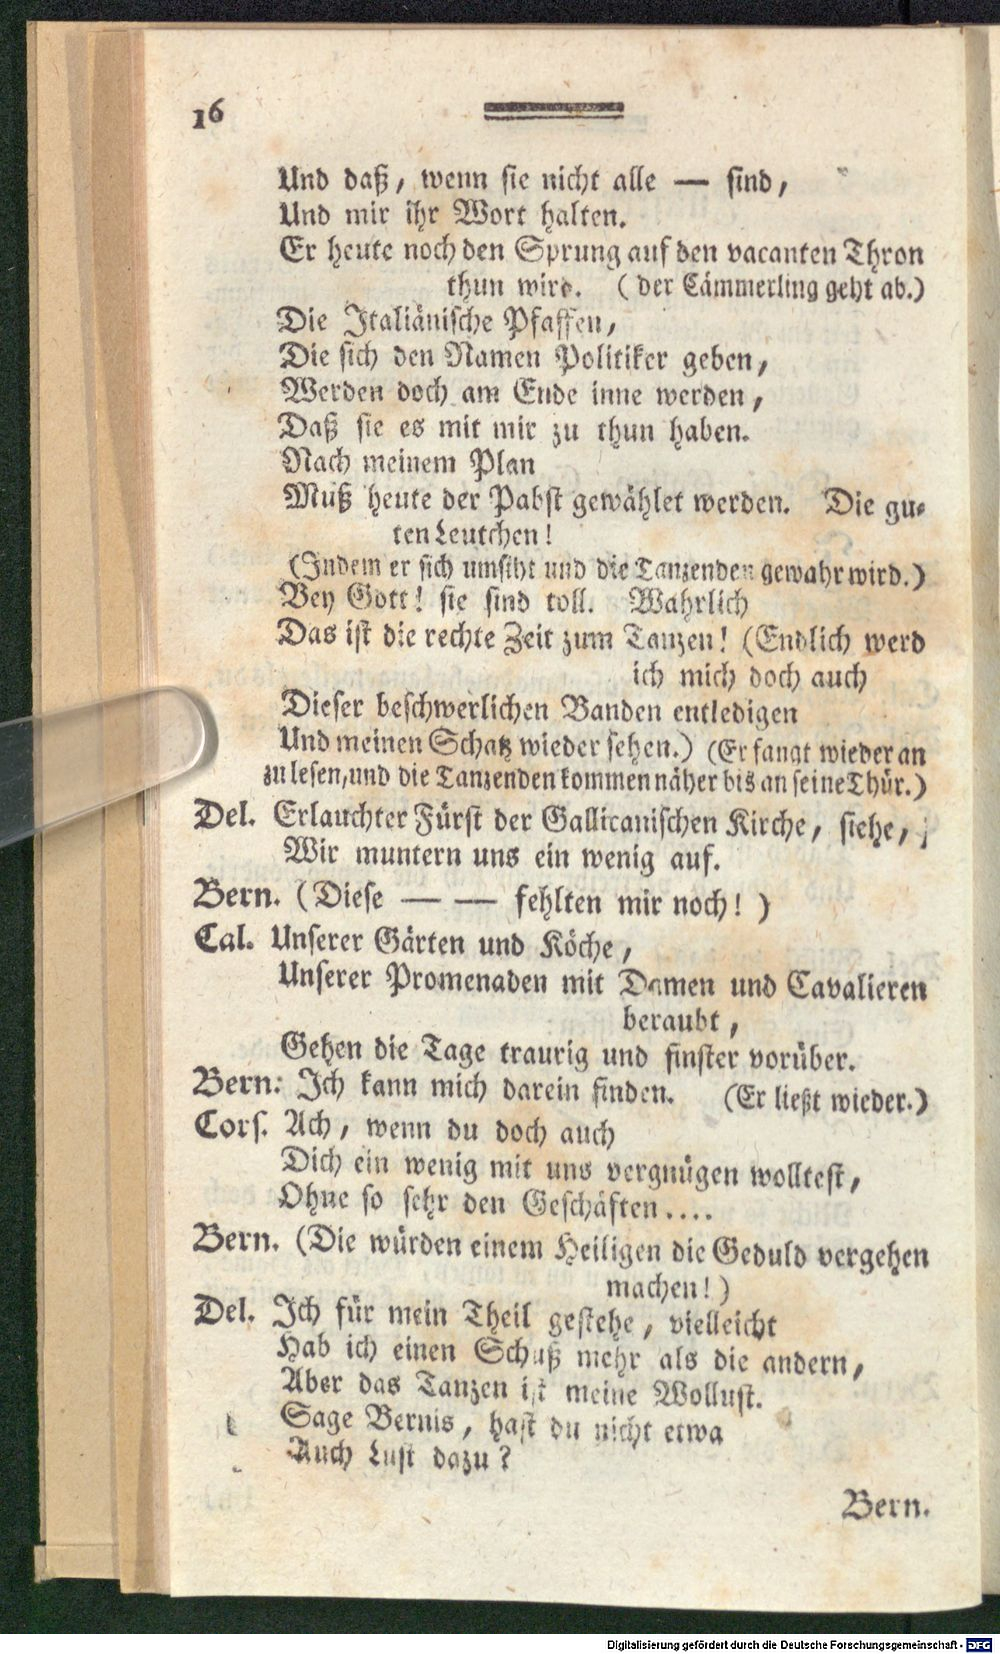 16
Und daß, wenn sie nicht alle — sind,
Und mir ihr Wort halten.
Er heute noch den Sprung auf den vacanten Thron
thun wird. (der Cämmerling geht ab.)
Die Italiänische Pfaffen,
Die sich den Namen Politiker geben,
Werden doch am Ende inne werden,
Daß sie es mit mir zu thun haben.
Nach meinem Plan
Muß heute der Pabst gewählet werden. Die gu-
ten Leutchen!
(Indem er sich umsiht und die Tanzenden gewahr wird.)
Bey Gott! sie sind toll. Wahrlich
Das ist die rechte Zeit zum Tanzen! (Endlich werd
ich mich doch auch
Dieser beschwerlichen Banden entledigen
Und meinen Schatz wieder sehen.) (Er fangt wieder an
zu lesen, und die Tanzenden kommen näher bis an seine Thür.)
Del. Erlauchter Fürst der Gallicanischen Kirche, siehe,
Wir muntern uns ein wenig auf.
Bern. (Diese — — fehlten mir noch!)
Cal. Unserer Gärten und Köche,
Unserer Promenaden mit Damen und Cavalieren
beraubt,
Gehen die Tage traurig und finster vorüber.
Bern: Ich kann mich darein finden. (Er ließt wieder.)
Cors. Ach, wenn du doch auch
Dich ein wenig mit uns vergnügen wolltest,
Ohne so sehr den Geschäften....
Bern. (Die würden einem Heiligen die Geduld vergehen
machen!)
Del. Ich für mein Theil gestehe, vielleicht
Hab ich einen Schuß mehr als die andern,
Aber das Tanzen ist meine Wollust.
Sage Bernis, hast du nicht etwa
Auch Lust dazu?
Bern.
Digitalisierung gefördert durch die Deutsche Forschungsgemeinschaft - DFG